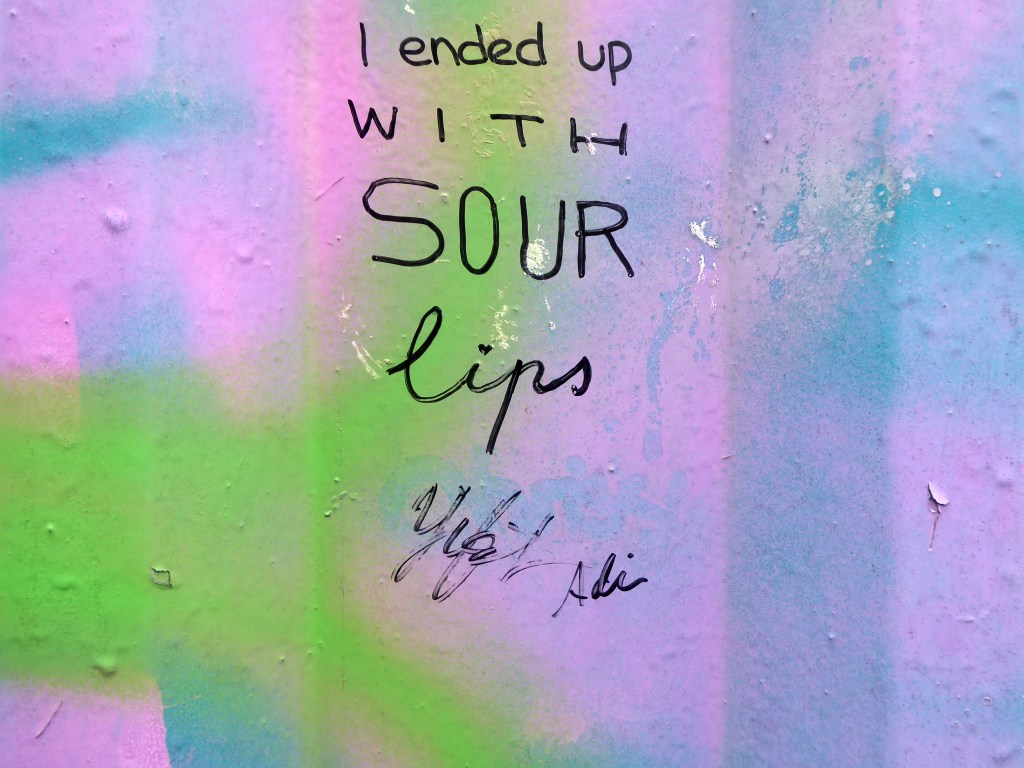 I ended up
WITH
SOUR
lips
Adi